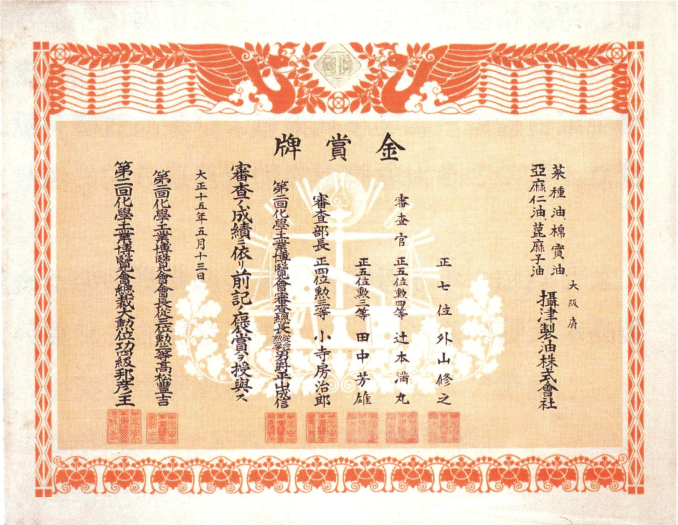 金賞牌
菜種油、棉實油、
亞麻仁油、蓖麻子油
大阪府
攝津製油株式會社
正七位 外山修之
審査官 正五位勲四等 辻本滿丸
正五位勲三等 田中芳雄
審査部長 正四位勲三等 小寺房治郎
第二回化學工業博覽會審査總長 男爵平山成信
審査ノ成績ニ依リ前記ノ褒賞ヲ授與ス
大正十五年五月十三日
第二回化學工業博覽會會長從三位勲二等高松豊吉
第二回化學工業博覽會總裁大勲位功四級邦彦王